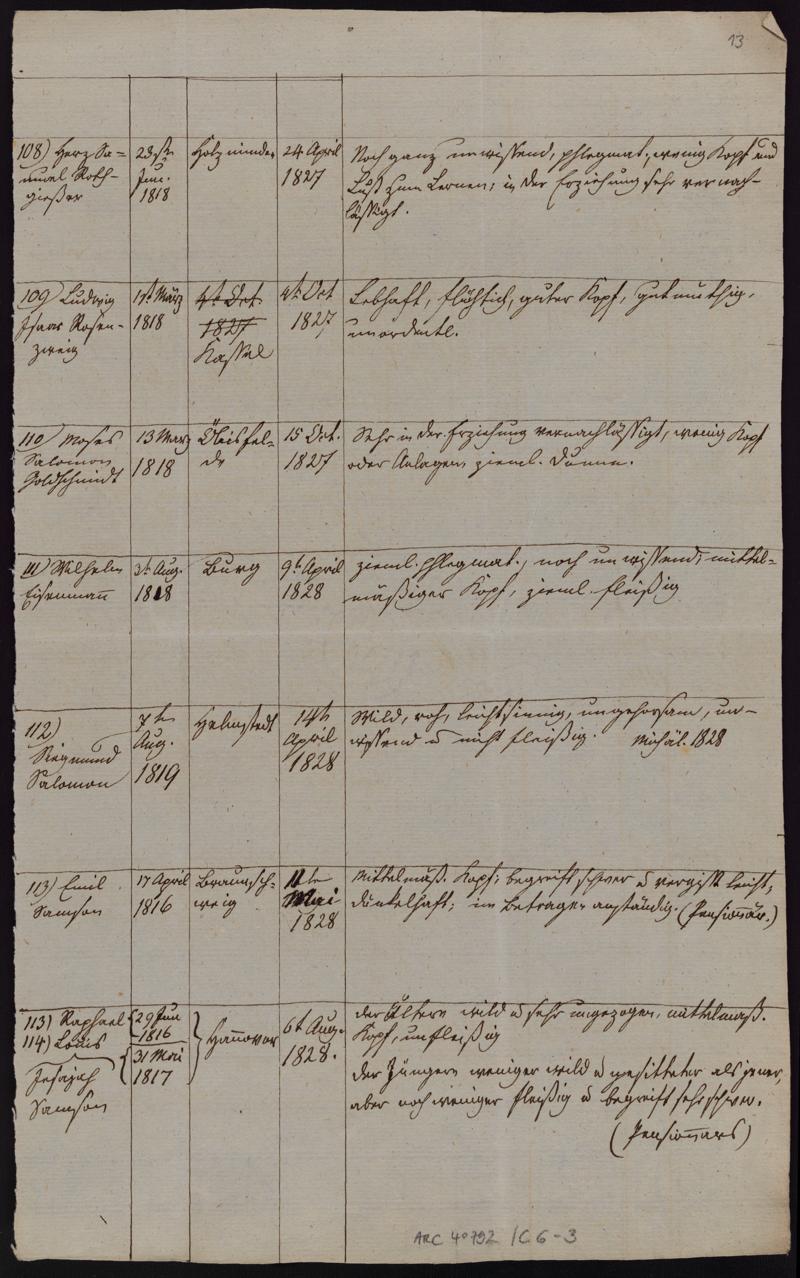 13
108) Herz Sa=
muel Roth-
gießer
23st
Jun.
1818
Holzminden
24 April
1827
Noch ganz unwissend, phlegmat., wenig Kopf und
Lust zum Lernen; in der Erziehung sehr vernach-
lässigt.
109) Ludwig
Isaac Rosen-
zweig
17t März
1818
4t Oct
1827
Kassel
4t Oct
1827
Lebhaft, flüchtich, guter Kopf, gutmüthig,
unordentl.
110) Moses
Salomon
Goldschmidt
13 Marz
1818
Öbisfel=
de
15 Oct.
1827
Sehr in der Erziehung vernachlässigt, wenig Kopf
oder Anlagen zieml.
111) Wilhelm
Eisenmann
3t Aug.
1818
Burg
9t April
1828
zieml. phlegmat., noch unwissend, mittel=
mäßiger Kopf, zieml. fleißig
112)
Siegmund
Salomon
7ten
Aug.
1819
Helmstedt
14th
April
1828
Wild, roh, leichtsinnig, ungehorsam, un-
wissend u nicht fleißig. Michäl. 1828
113) Emil
Samson
17 April
1816
Braunsch=
weig
11te
Mai
1828
Mittelmäß. Kopf; begreift schwer u vergißt leicht,
dünkelhaft; im Betragen anständig. (Pensionnär.)
113) Raphael
114) Louis
Jesajah
Samson
29 Jun
1816
31 Mai
1817
Hannover
6t Aug.
1828.
der Ältern wild u sehr ungezogen, mittelmäß.
Kopf, unfleißig
der Jüngern weniger wild u gesitteter als jener,
aber noch weniger fleißig u begreift sehr schwer.
(Pensionnars)
ARC 4°792 / C 6-3